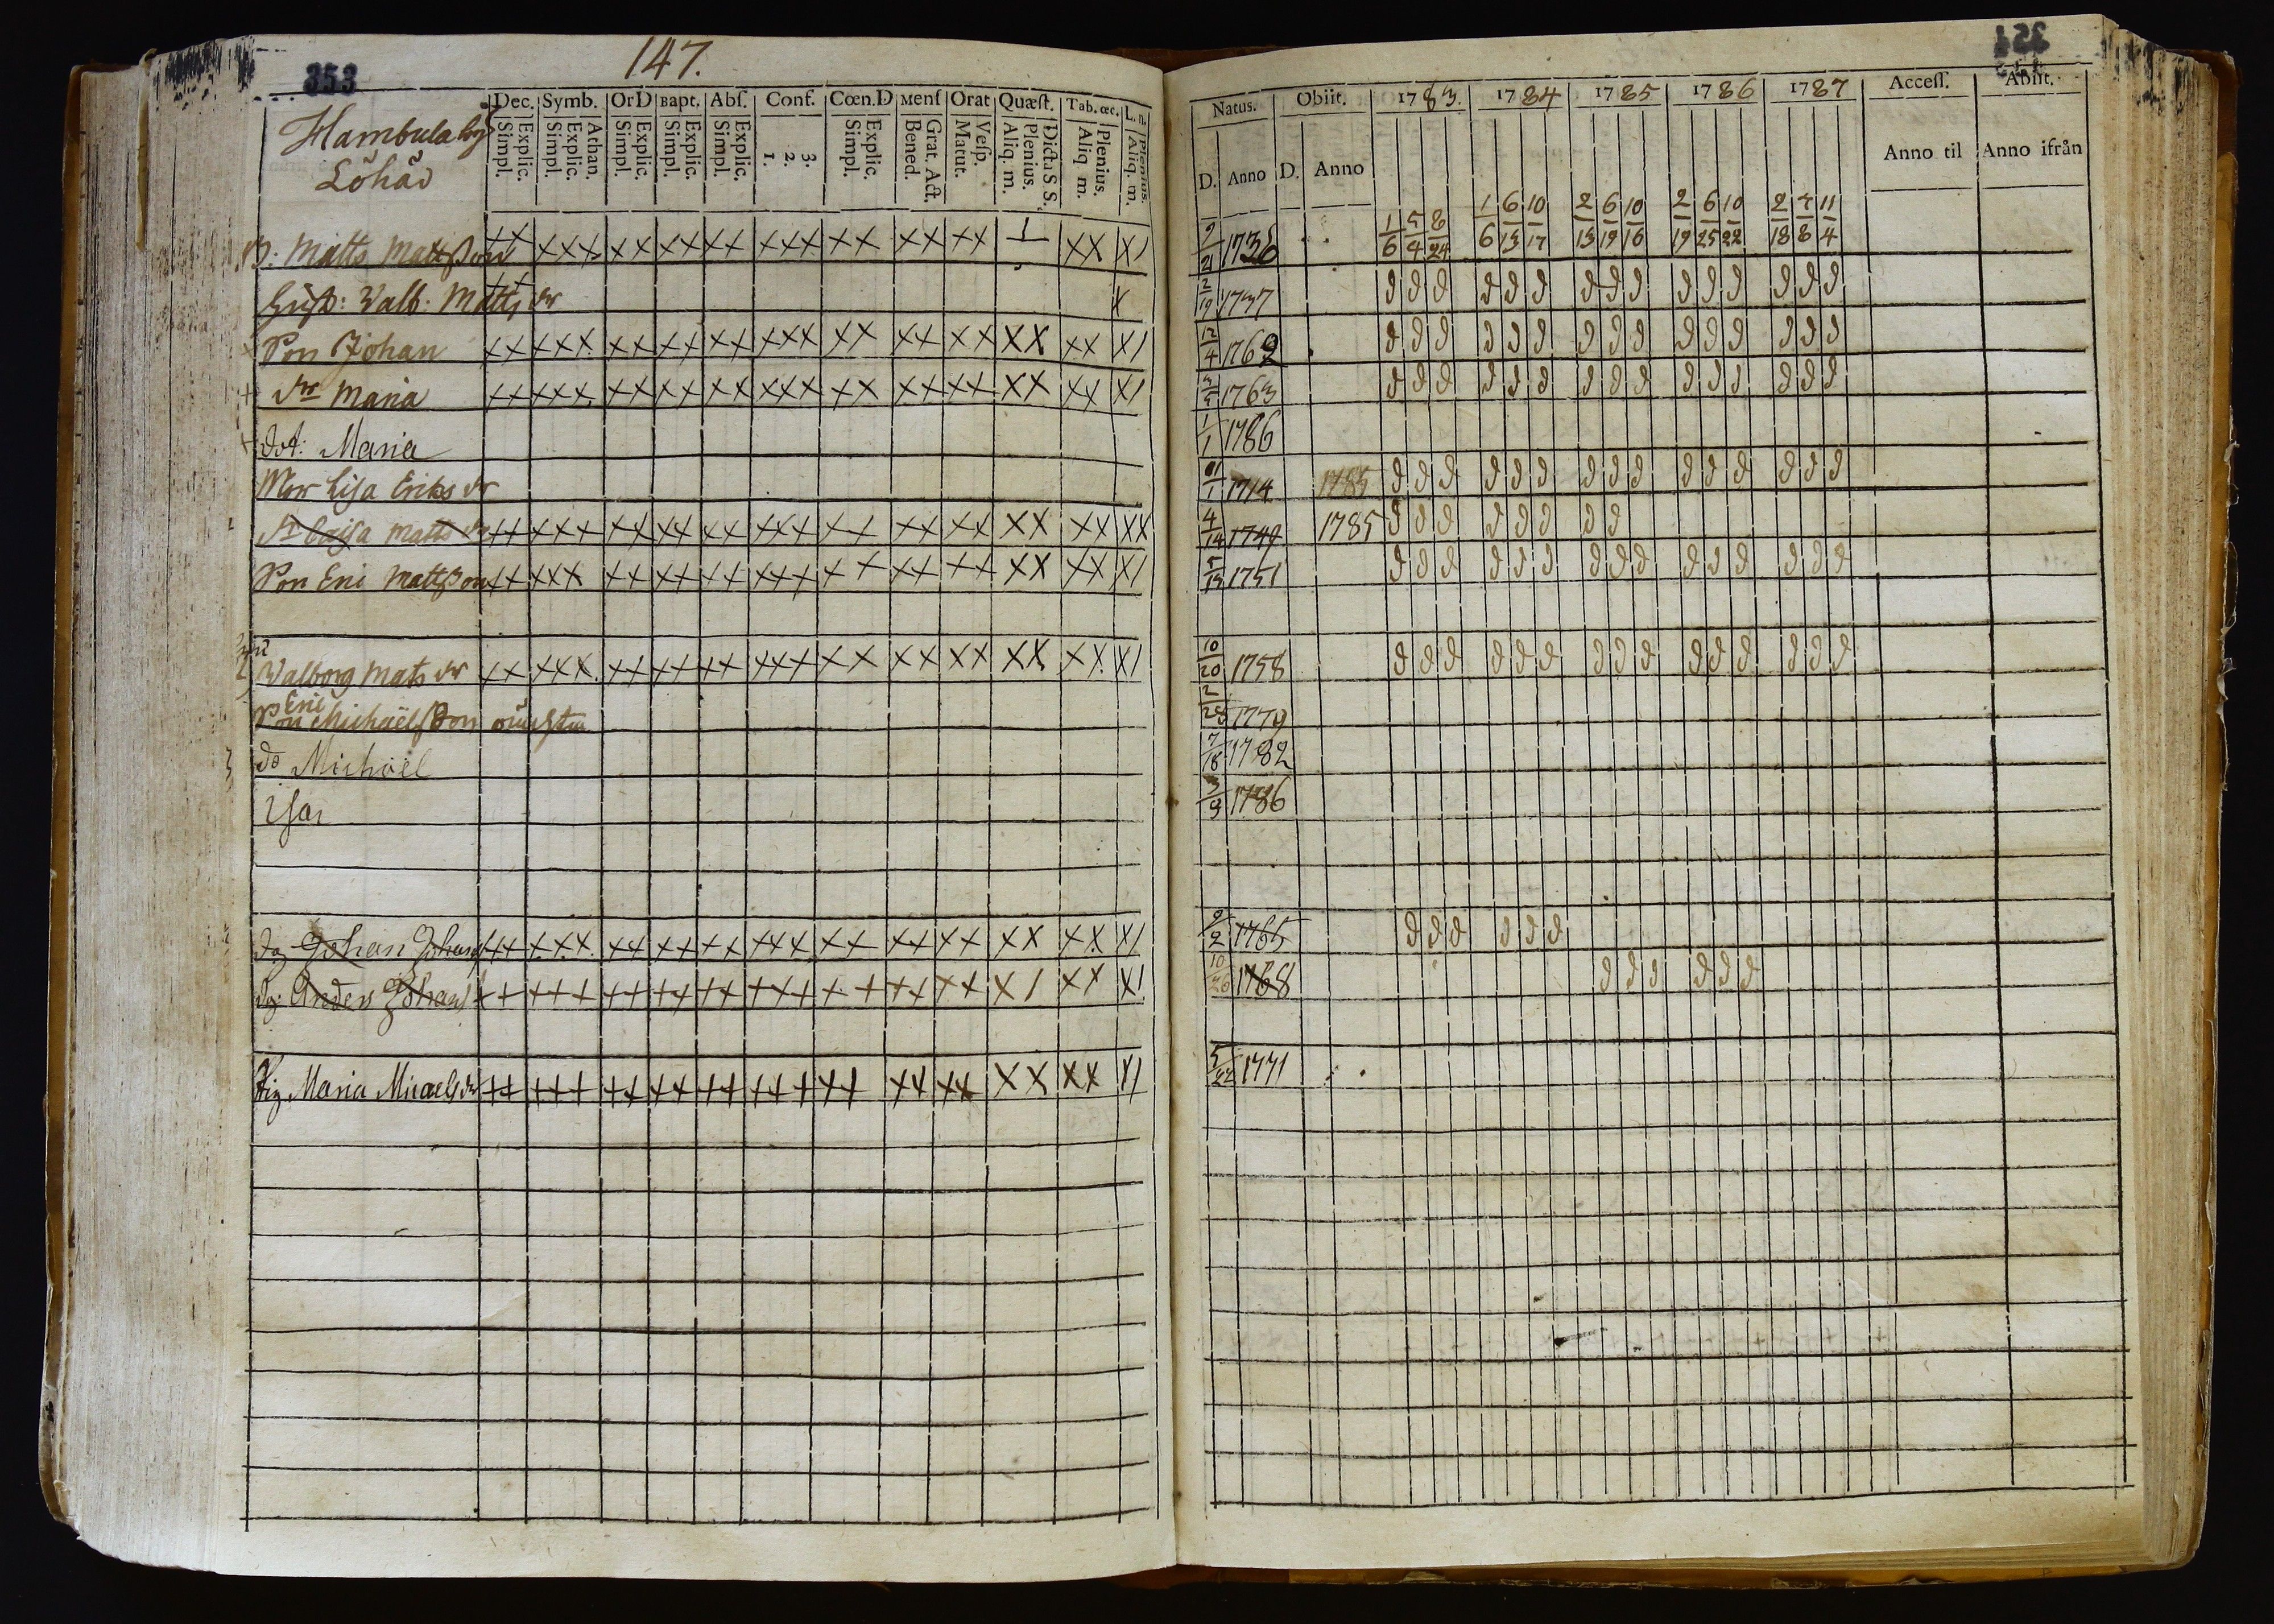 353
147.
Hambula by
Löhäd
Dec. Symb. OrD Bapt. Abſ. Conf. Cœn.D Menſ Orat Quæſt. Tab. œc. L. n.
Explic. Simpl. Athan. Explic. Simpl. Explic. Simpl. Explic. Simpl. Explic. Simpl. 3. 2. 1. Explic. Simpl. Grat. Act. Bened. Veſp. Matut. Dicta S. S. Plenius. Aliq. m. Plenius. Aliq m. Plenius. Aliq. m.
Natus. Obiit. 1783. 1784 1785 1786 1787 Acceſſ. Abiit.
D. Anno D. Anno Anno til Anno ifrån
1/6 5/4 8/24 1/6 6/13 10/17 2/13 6/19 10/16 2/19 6/25 10/22 2/18 4/8 11/4
B: Matts Mattsson xx xxx xx xx xx xxx xx xx xx 1 xx x1 9/21 1736
Hust: Valb: Matts dr x 2/19 1737 d d d d d d d d d d d d d d d
Son Johan xx xxx xx xx xx xxx xx xx xx xx xx x1 12/4 1762 d d d d d d d d d d d d d d d
Maria xx xxx xx xx xx xxx xx xx xx xx xx x1 3/5 1763 d d d d d d d d d d d d d d d
dot: Maria 1/1 1786
Mor Lisa Eriks dr 1/1 1714 1785 d d d d d d d d d d d d d d d
Caisa Matts dr xx xxx xx xx xx xxx xx xx xx xx xx xx 4/14 1749 1785 d d d d d d d d
Son Eric Mattsson xx xxx xx xx xx xxx xx xx xx xx xx x1 5/13 1751 d d d d d d d d d d d d d d d
Valborg Mats dr xx xxx xx xx xx xxx xx xx xx xx xx x1 10/20 1758 d d d d d d d d d d d d d d d
Eric
Son Michaelsson 1779
do Michael 7/18 1782
Isac 3/9 1786
dg Johan Johans xx xxx xx xx xx xxx xx xx xx xx xx x1 9/2 1765 d d d d d d
dg Anders Johans xx xxx xx xx xx xxx xx xx xx x1 xx x1 10/26 1768 d d d d d d
Pig Maria Micaels dr xx xxx xx xx xx xxx xx xx xx xx xx x1 5/22 1771